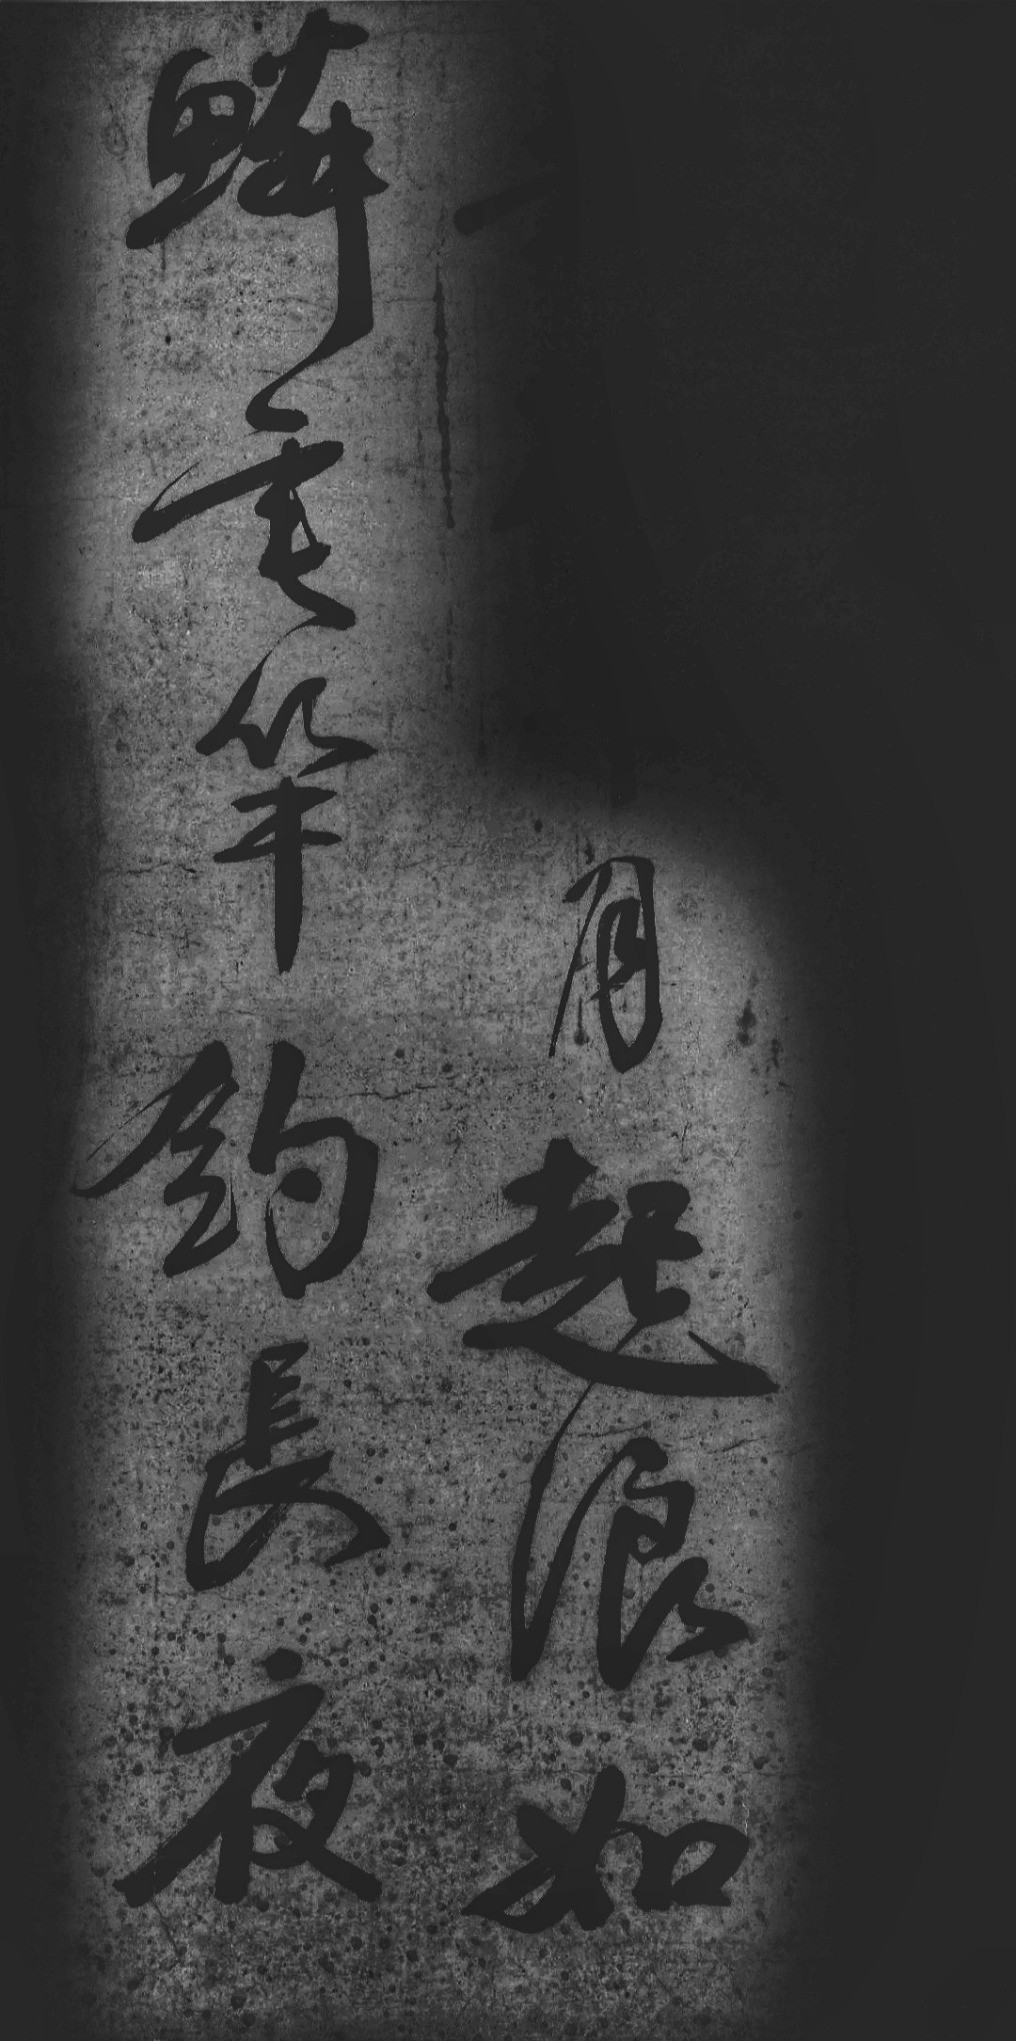 月起浪如
鱗壹竿釣長夜